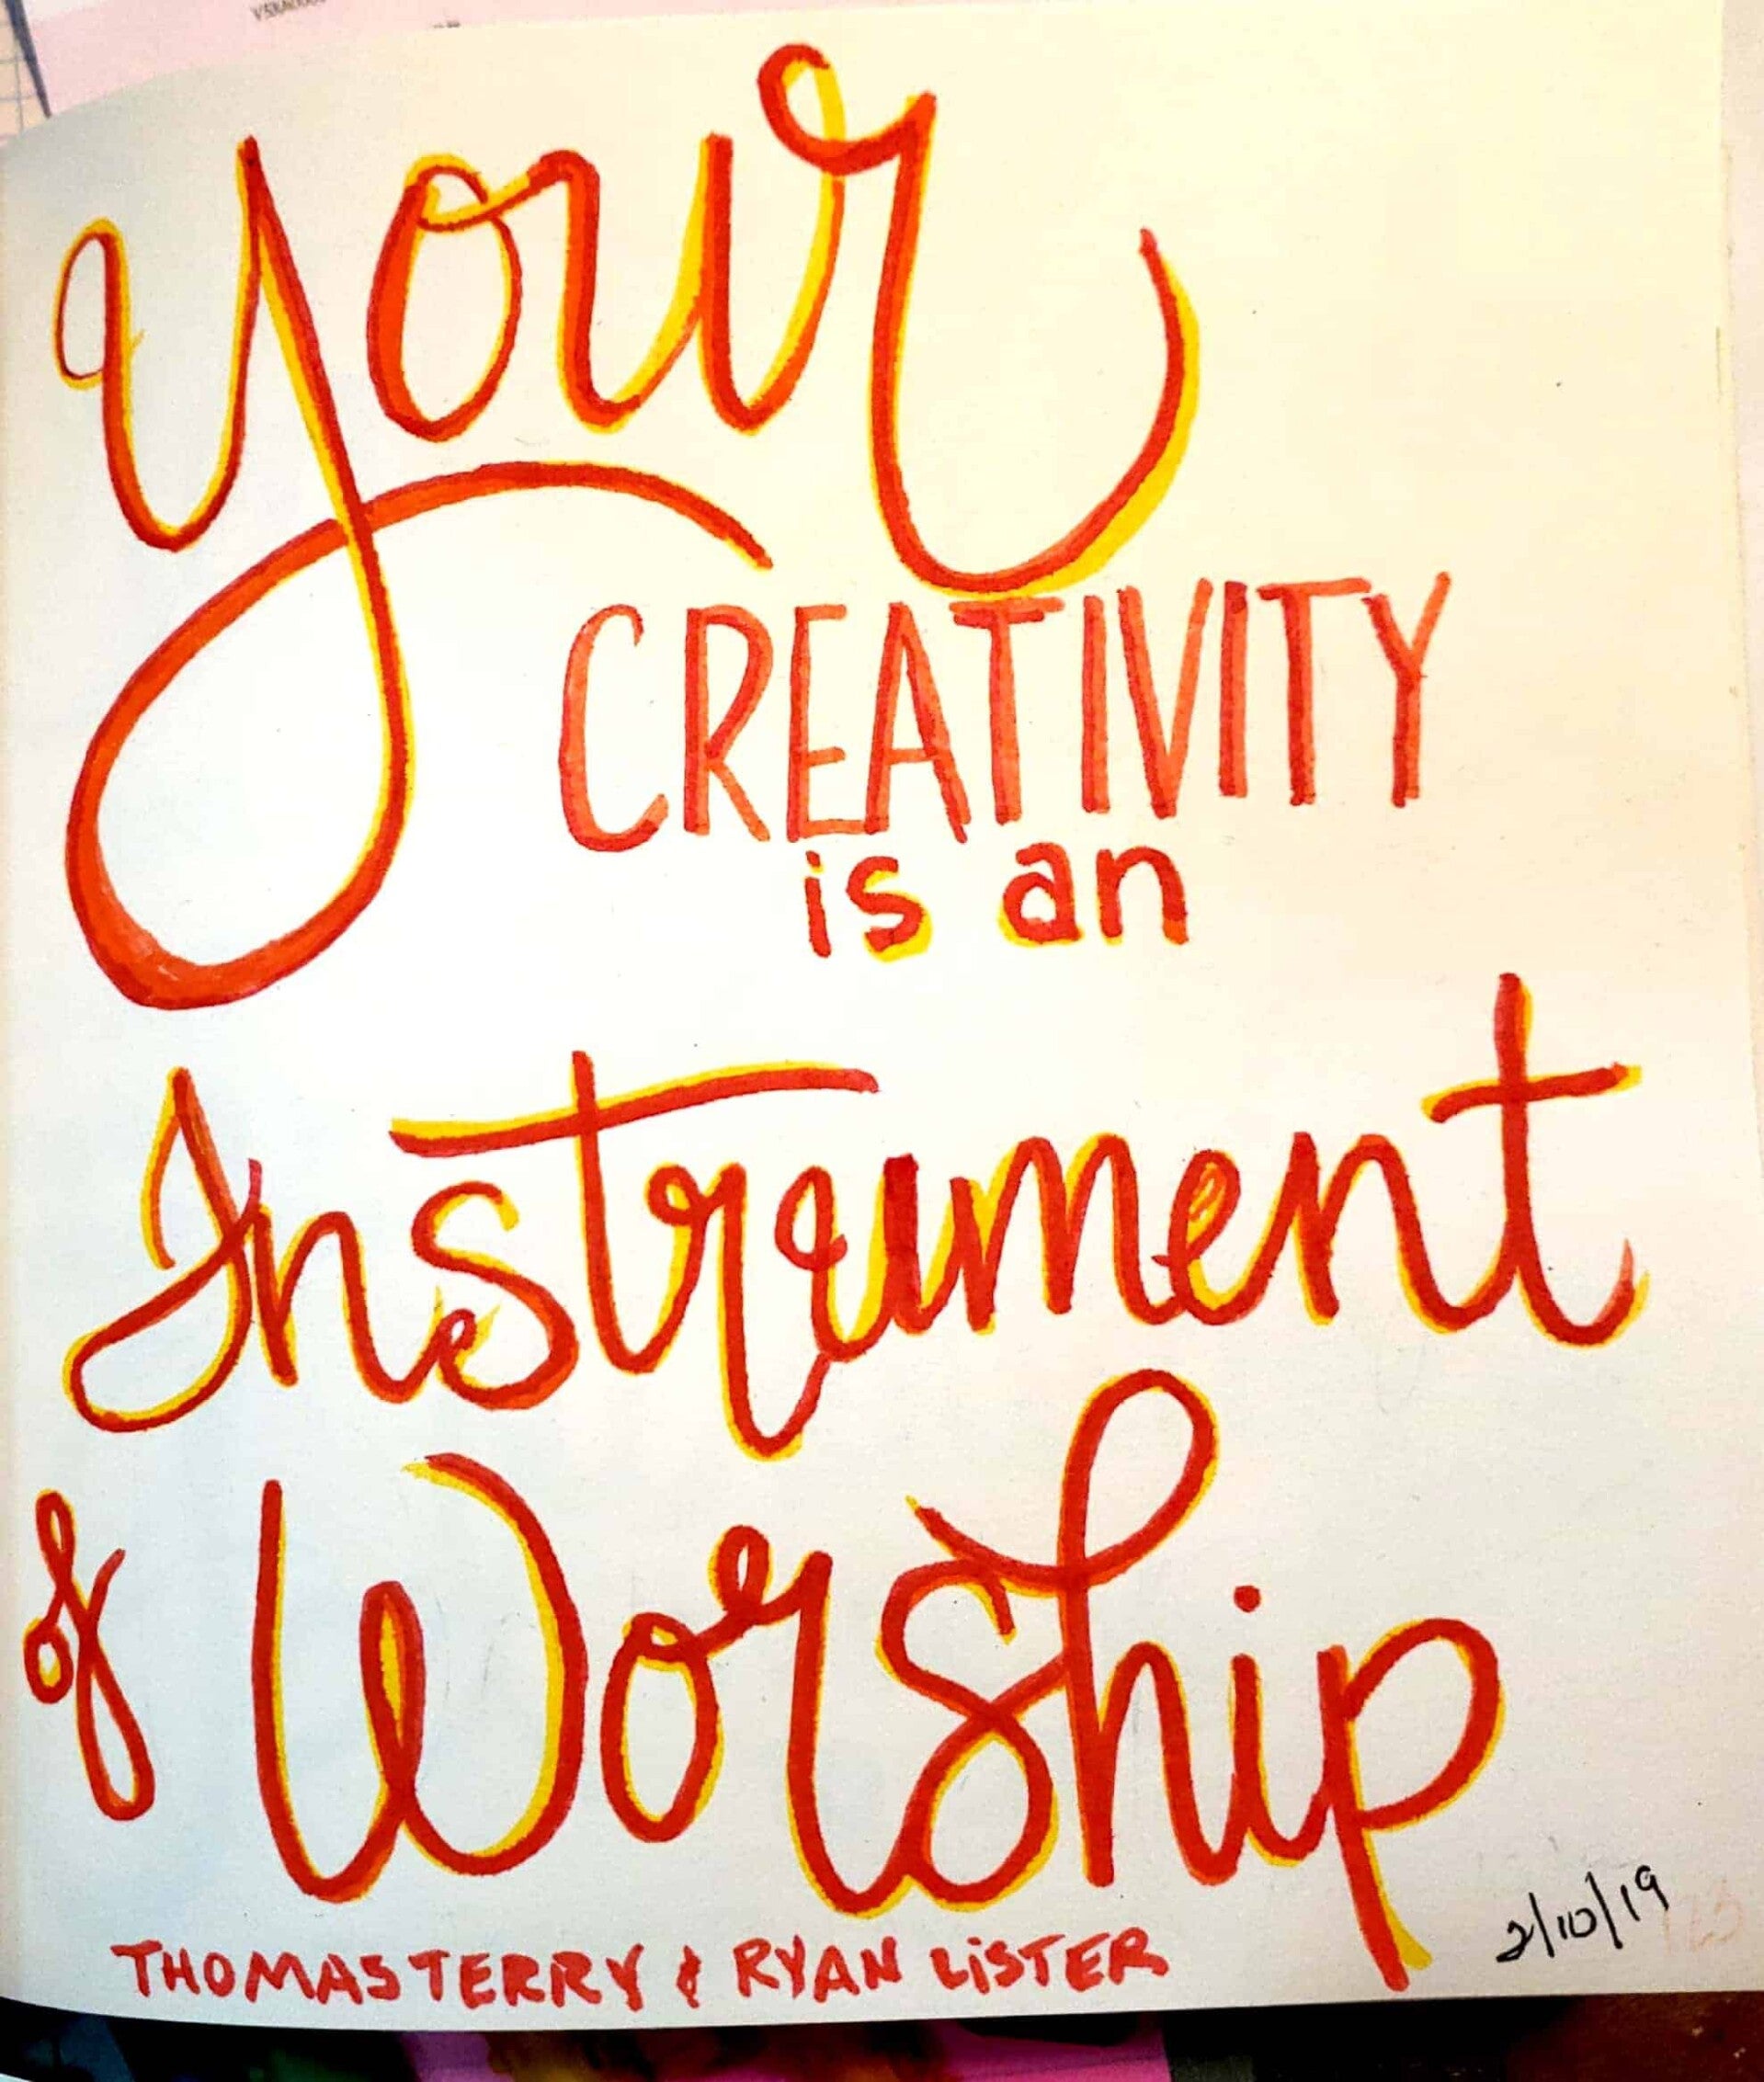 Your
CREATIVITY
is an
Instrument
of Worship
THOMAS TERRY & RYAN LiSTER
2/10/19